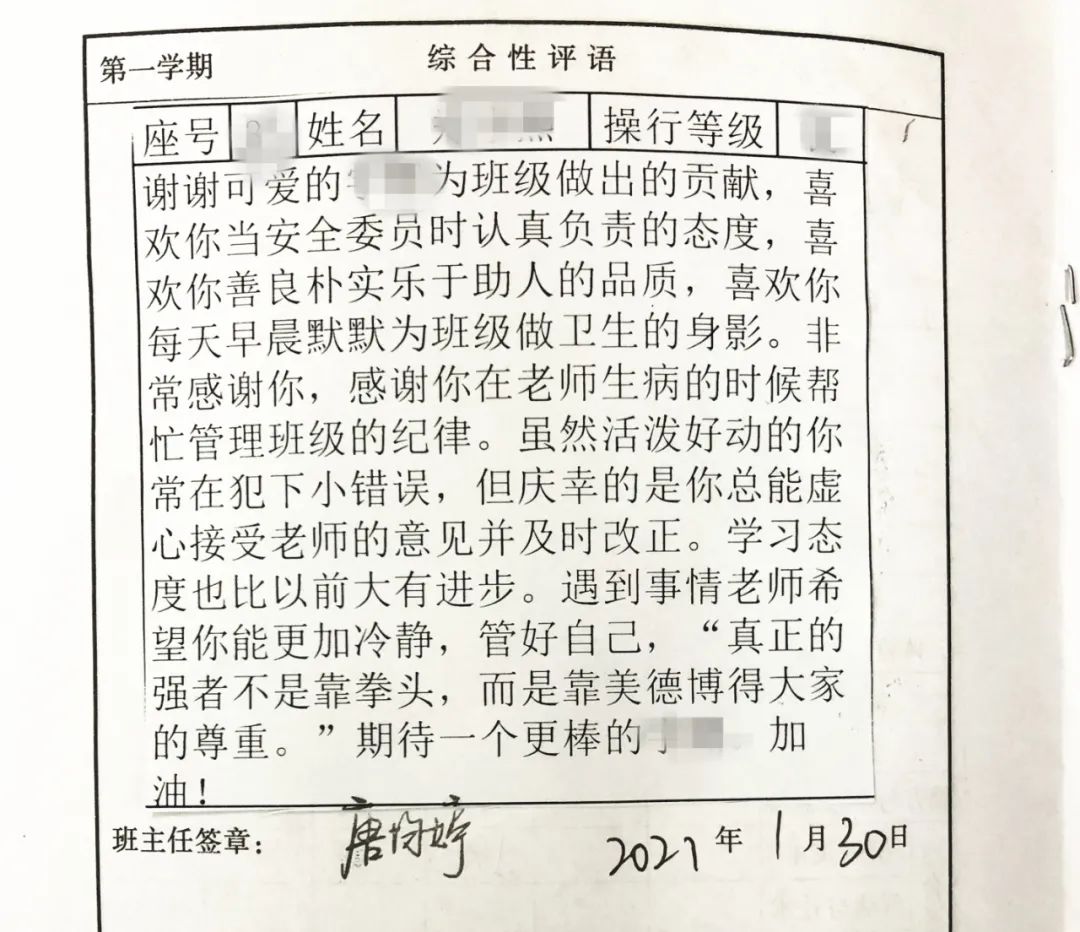 第一学期 综合性评语
座号 姓名 操行等级
谢谢可爱的 为班级做出的贡献，喜
欢你当安全委员时认真负责的态度，喜
欢你善良朴实乐于助人的品质，喜欢你
每天早晨默默为班级做卫生的身影。非
常感谢你，感谢你在老师生病的时候帮
忙管理班级的纪律。虽然活泼好动的你
常在犯下小错误，但庆幸的是你总能虚
心接受老师的意见并及时改正。学习态
度也比以前大有进步。遇到事情老师希
望你能更加冷静，管好自己，“真正的
强者不是靠拳头，而是靠美德博得大家
的尊重。”期待一个更棒的 加
油！
班主任签章： 唐 婷 2021年1月30日